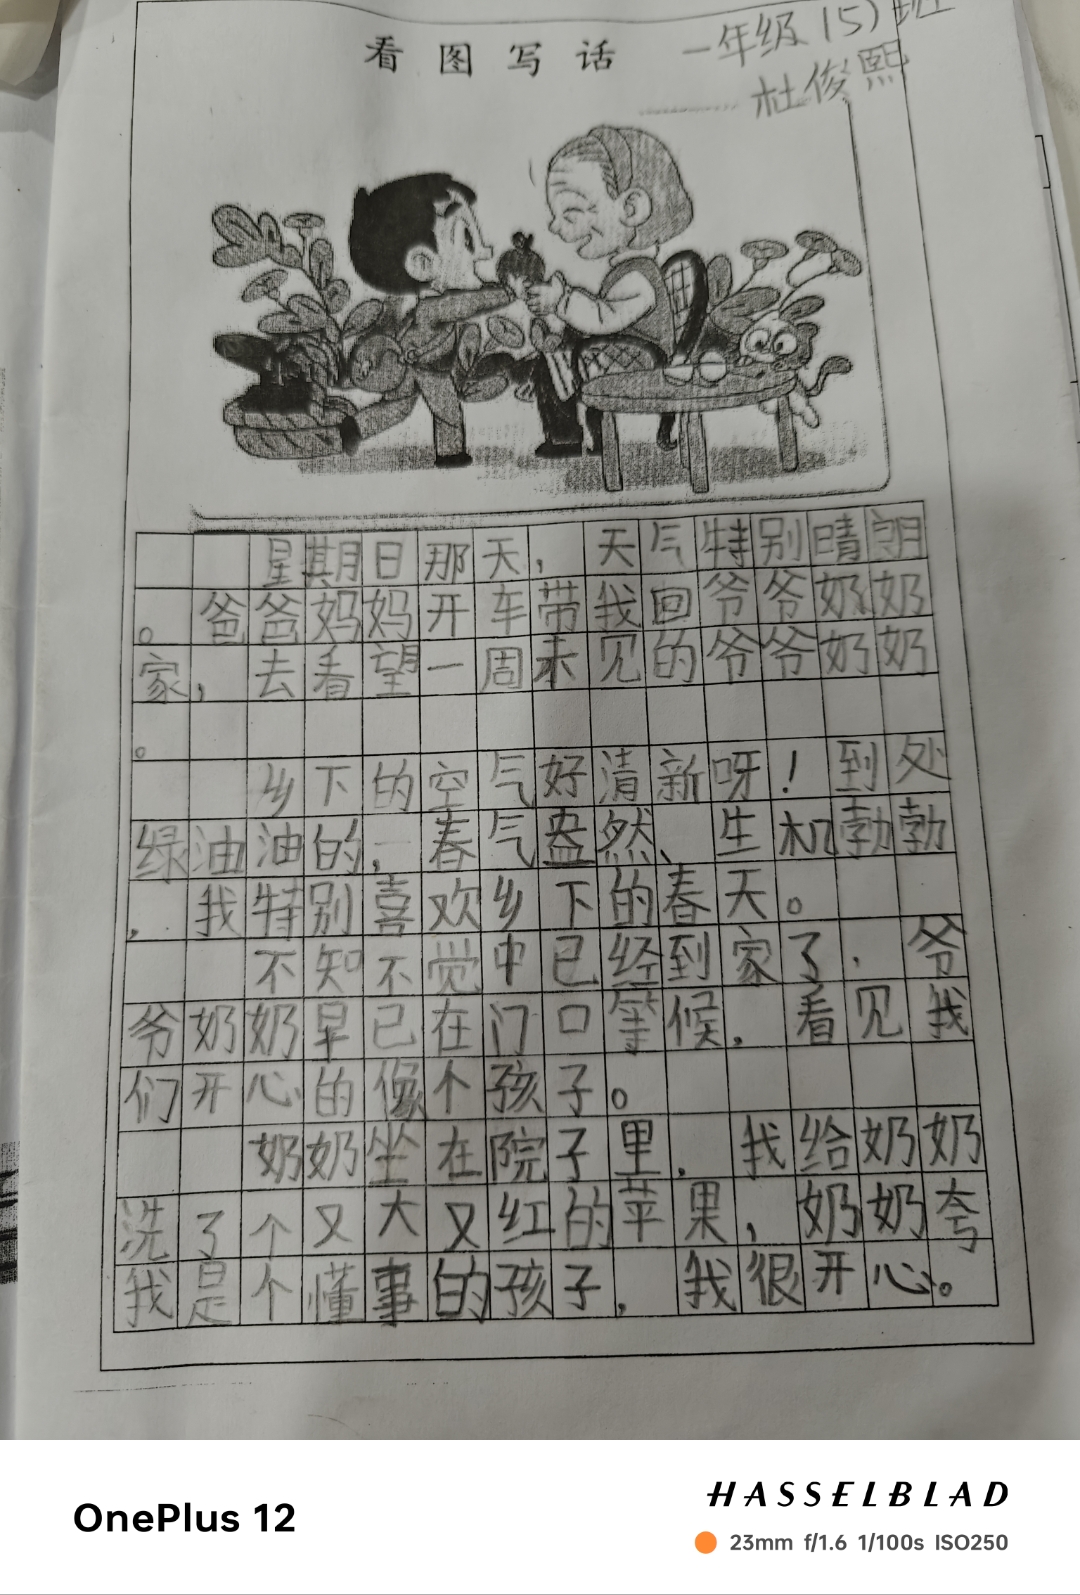 看图写话
一年级(5)班
杜俊熙
星期日那天，天气特别晴朗
。爸爸妈妈开车带我回爷爷奶奶
家，去看望一周未见的爷爷奶奶
。
乡下的空气好清新呀！到处
绿油油的，春气盎然、生机勃勃
，我特别喜欢乡下的春天。
不知不觉中已经到家了．爷
爷奶奶早已在门口等候，看见我
们开心的像个孩子。
奶奶坐在院子里，我给奶奶
洗了个又大又红的苹果，奶奶夸
我是个懂事的孩子，我很开心。
OnePlus 12
HASSELBLAD
23mm f/1.6 1/100s ISO250